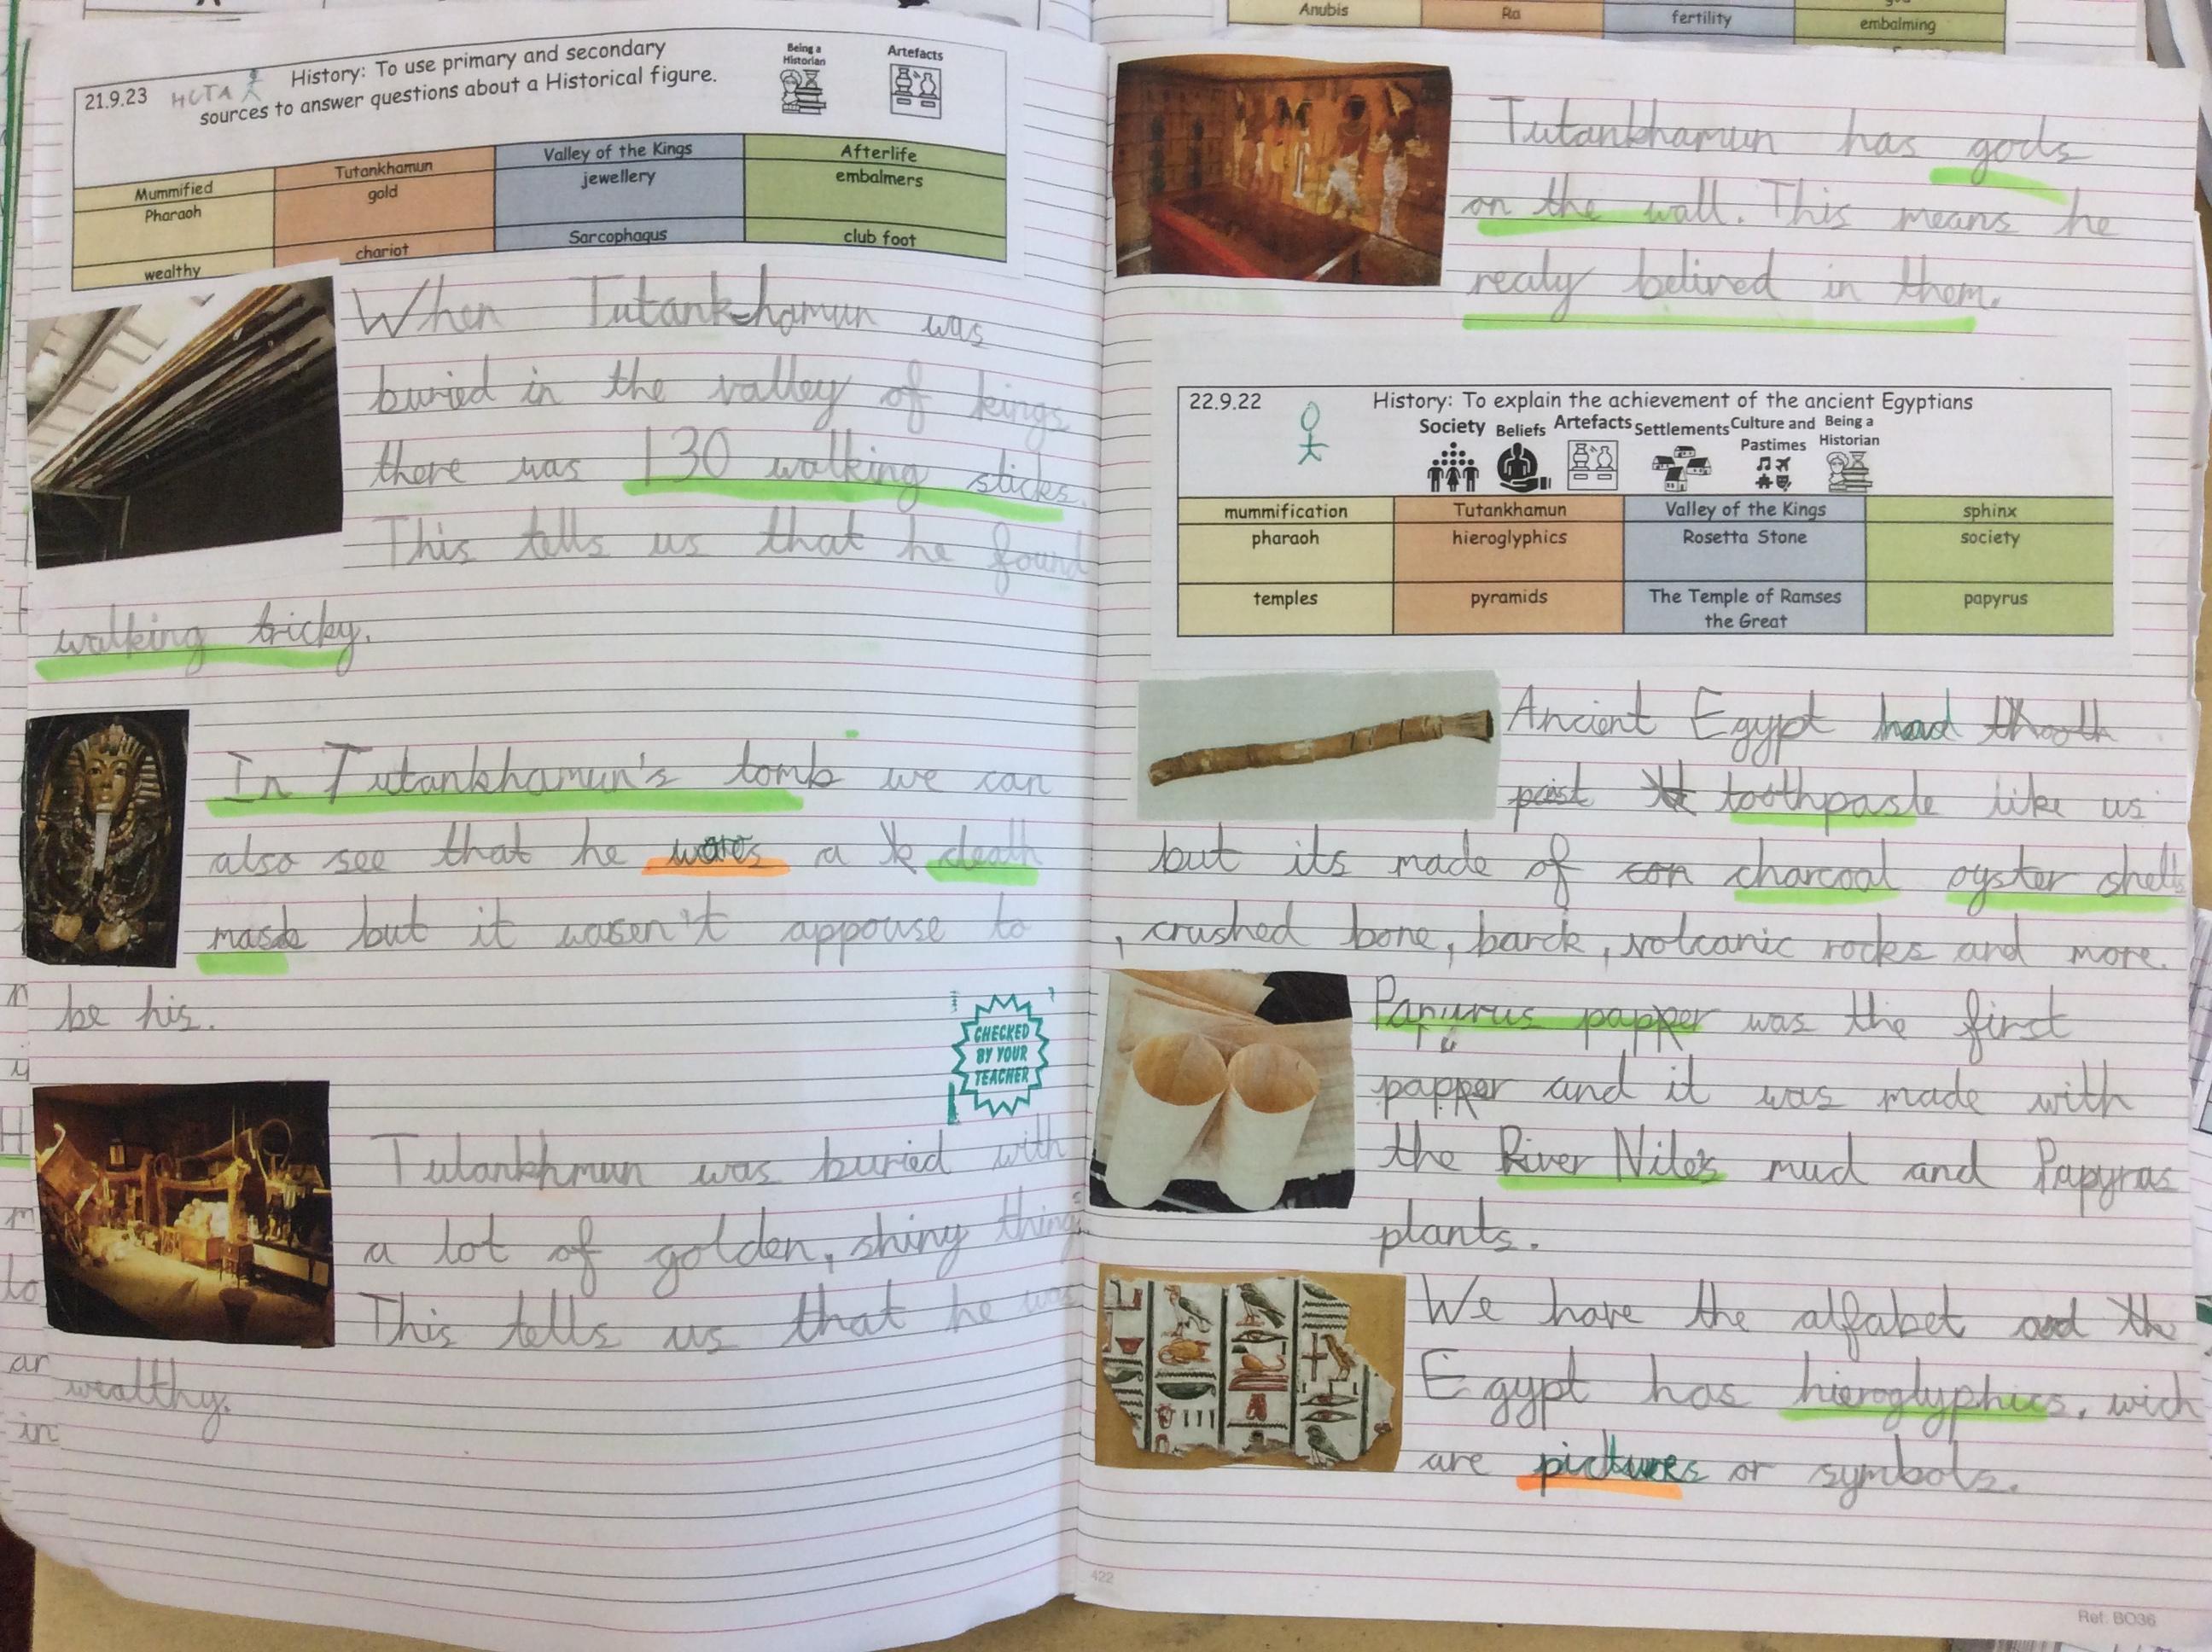 21.9.23 HCTA History: To use primary and secondary
sources to answer questions about a Historical figure.
Being a
Historian
Artefacts
Mummified Tutankhamun Valley of the Kings Afterlife
Pharaoh gold jewellery embalmers
wealthy chariot Sarcophagus club foot
When Tutankhamun was
buried in the valley of kings
there was 130 walking sticks.
This tells us that he found
walking tricky.
In Tutankhamun's tomb we can
also see that he wores a death
mask but it wasen't appouse to
be his.
CHECKED
BY YOUR
TEACHER
Tutankhmun was buried with
a lot of golden, shiny things
This tells us that he was
wealthy.
Anubis Ra fertility embalming
Tutankhamun has gods
on the wall. This means he
realy belived in them.
22.9.22 History: To explain the achievement of the ancient Egyptians
Society Beliefs Artefacts Settlements Culture and
Pastimes
Being a
Historian
mummification Tutankhamun Valley of the Kings sphinx
pharaoh hieroglyphics Rosetta Stone society
temples pyramids The Temple of Ramses
the Great
papyrus
Ancient Egypt had
past toothpaste like us
but its made of con charcoal oyster shells
, crushed bone, barck, volcanic rocks and more.
Papyurus papper was the first
papper and it was made with
the River Nile's mud and Papyras
plants.
We have the alfabet and the
Egypt has hieroglyphics, wich
are pictures or symbols.
422
Ref: BO36